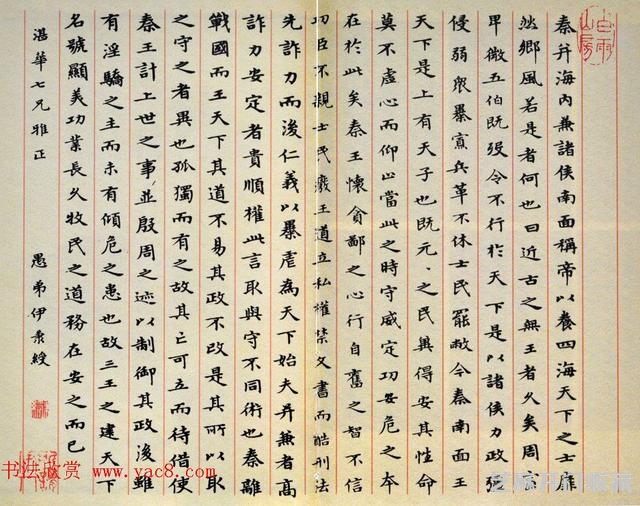 秦并海內兼諸侯南面稱帝以養四海天下之士靡
然鄉風若是者何也曰近古之無王者久矣周室
卑微五伯既歿令不行於天下是以諸侯力政彊
侵弱眾暴寡兵革不休士民罷敝今秦南面王
天下是上有天子也既元〻之民冀得安其性命
莫不虛心而仰上當此之時守威定功安危之本
在於此矣秦王懷貪鄙之心行自奮之智不信
功臣不親士民廢王道立私權禁文書而酷刑法
先詐力而後仁義以暴虐為天下始夫并兼者高
詐力安定者貴順權此言取與守不同術也秦離
戰國而王天下其道不易其政不改是其所以取
之守之者異也孤獨而有之故其亡可立而待借使
秦王計上世之事並殷周之迹以制御其政後雖
有淫驕之主而未有傾危之患也故三王之建天下
名號顯美功業長久牧民之道務在安之而已
湛華七兄雅正
愚弟伊秉綬
白雨山房
书法欣赏 www.yac8.com